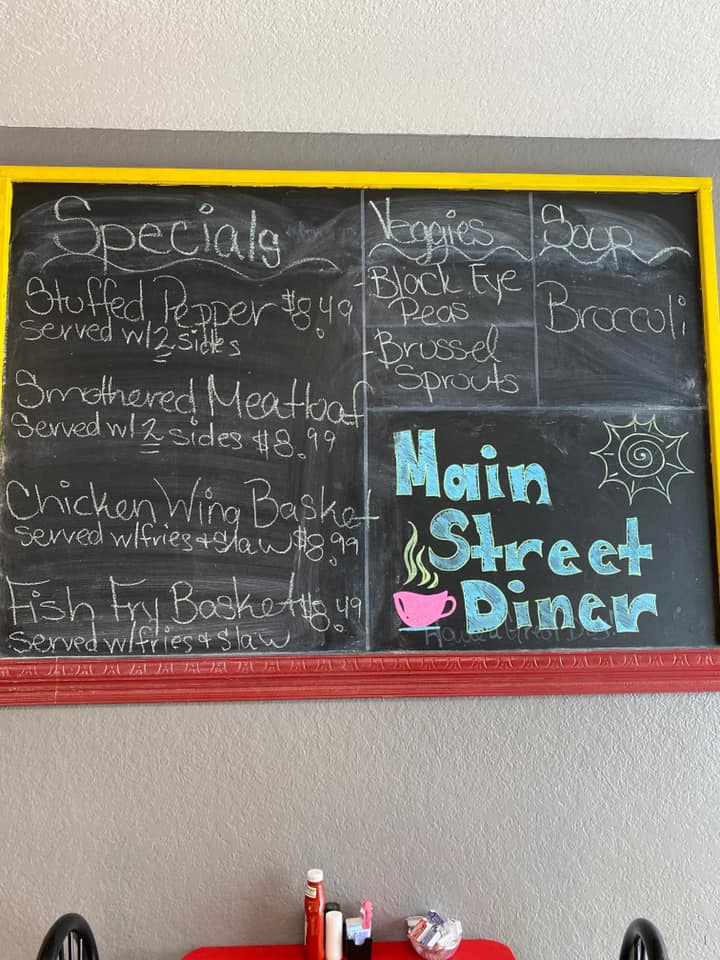 Specials
Stuffed Pepper $8.49
served w/2 sides
Smothered Meatloaf
Served w/2 sides $8.99
Chicken Wing Basket
served w/fries + slaw $8.99
Fish Fry Basket $8.49
served w/fries & slaw
Veggies
- Black Eye
Peas
- Brussel
Sprouts
Soup
Broccoli
Main
Street
Diner